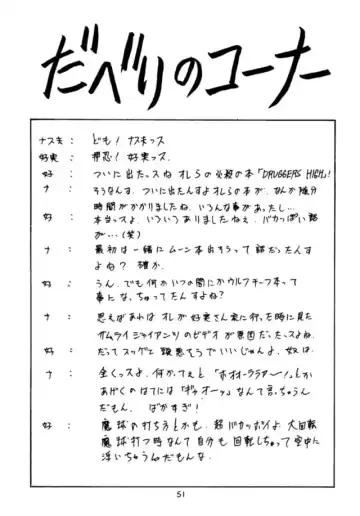 だべりのコーナー
ナスキ: ども! ナスキっス
好実: 押忍! 好実っス.
好: ついに出たっスねオレらの必殺の本「DRUGGERS HIGH」!
ナ: そうなんす. ついに出たんすよオレらの本が. なんか随分
時間がかかりましたね. いろんな事があったし…
好: 本当っスよ. いろいろありましたねぇ. バカっぽい話
が…(笑)
ナ: 最初は一緒にムーン本出そうって話だったんす
よね? 確か.
好: うん. でも何かいつの間にかウルフチーフ本って
事になっちゃってたんすよね?
ナ: 思えばあれはオレが好実さん家に行った時に見た
サムライジャイアンツのビデオが原因だったっスよね.
好: だってスッゲェ頭悪そうでいいじゃんよ. 奴は.
ナ: 全くっスよ. 何かってぇと「ホオオーララァ〜!」とか
あげくのはてには「ギャオーッ」なんて言っちゃうん
だもん. ばかすぎ!
好: 魔球の打ち方とかも. 超バカッポイよ. 大回転
魔球打つ時なんて自分も回転しちゃって空中に
浮いちゃうんだもんな.
51